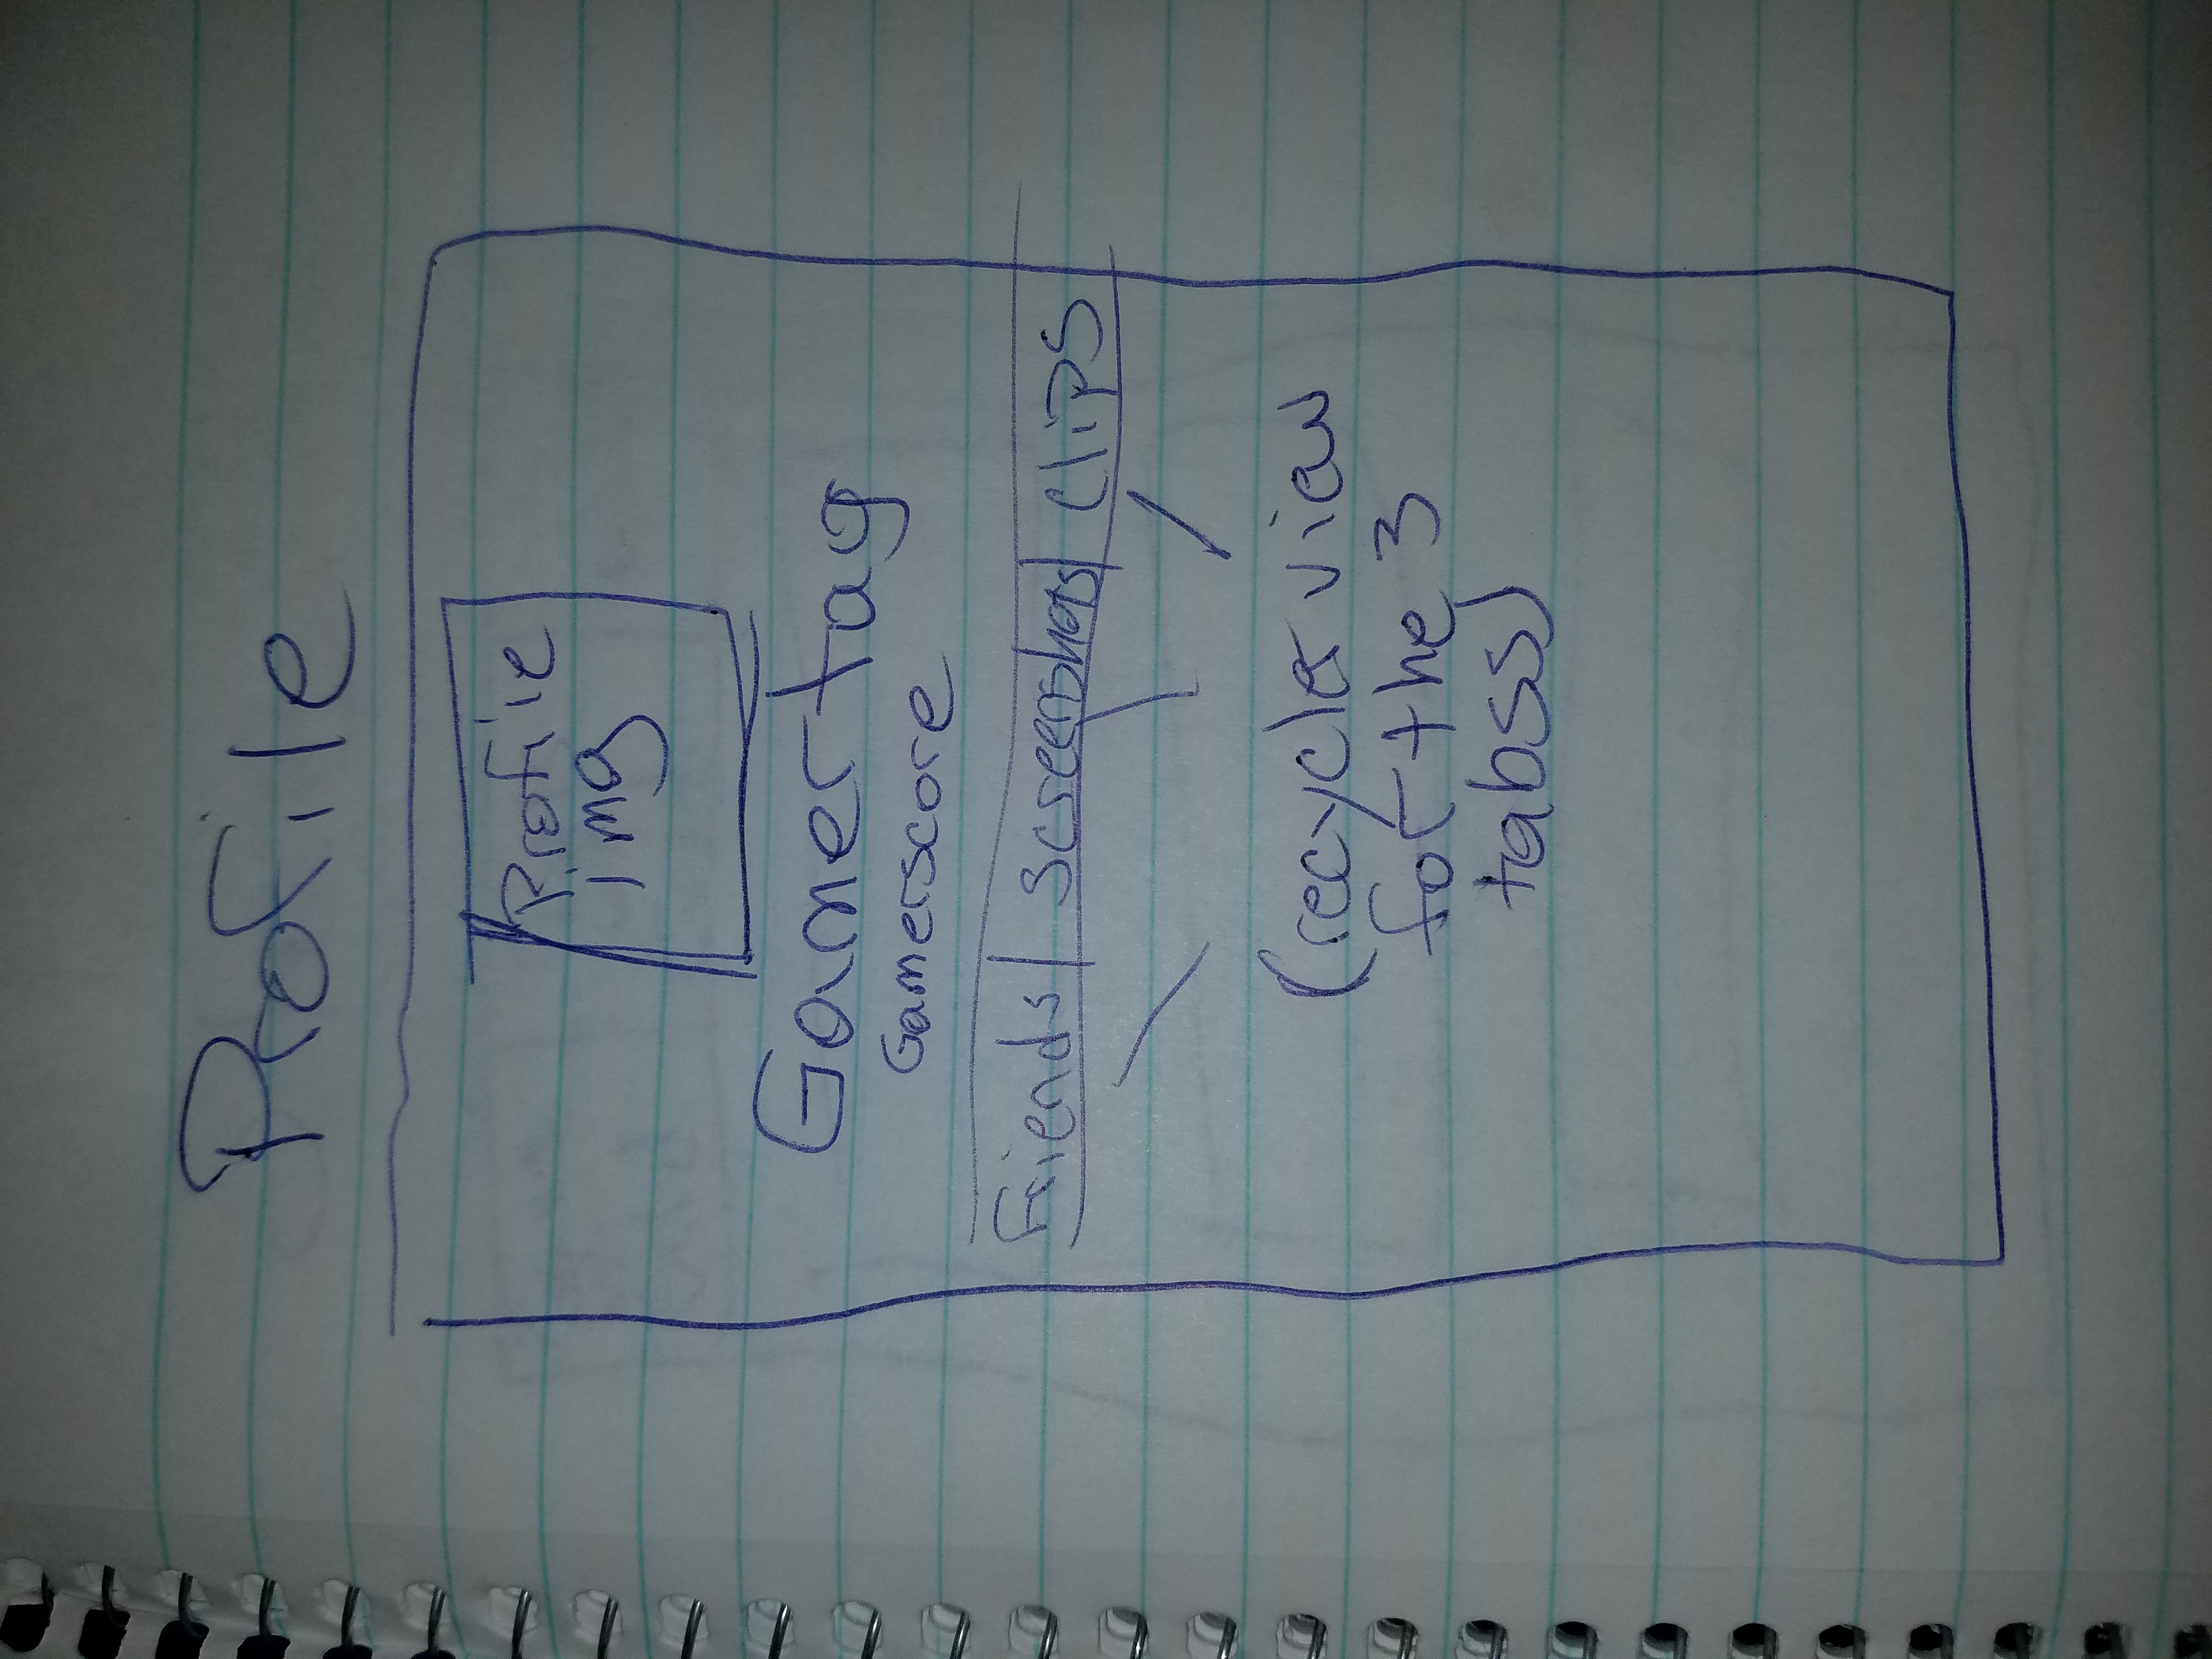 Profile
Profile
img
Gamertag
Gamerscore
Friends | Screenshots | clips
(recycler view
for the 3
tabss)